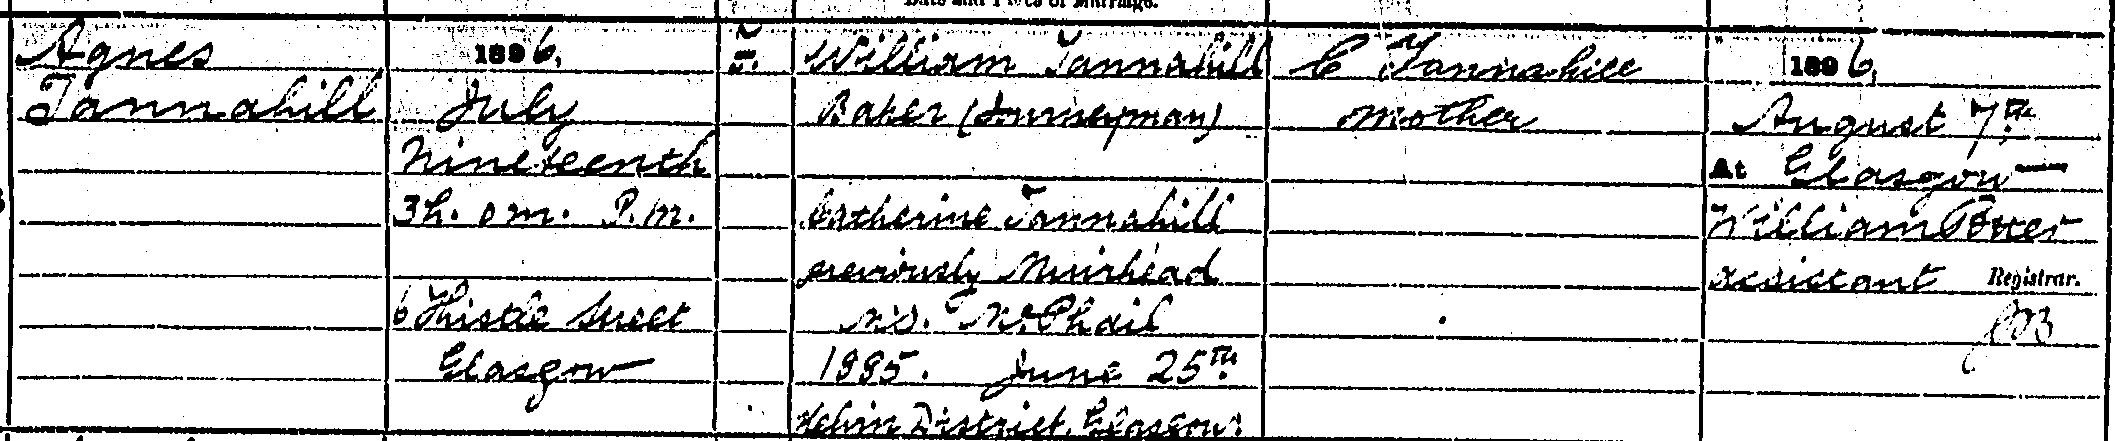 Date and Place of Marriage.
Agnes
Tannahill
1896,
July
Nineteenth
3h. 0m. P.M.
6 Thistle Street
Glasgow
F.
William Tannahill
Baker (Journeyman)
Catherine Tannahill
previously Muirhead
M.S. McPhail
1885. June 25th
Kelvin District, Glasgow.
C Tannahill
Mother
1896,
August 7th
At Glasgow
William Potter
Assistant Registrar.